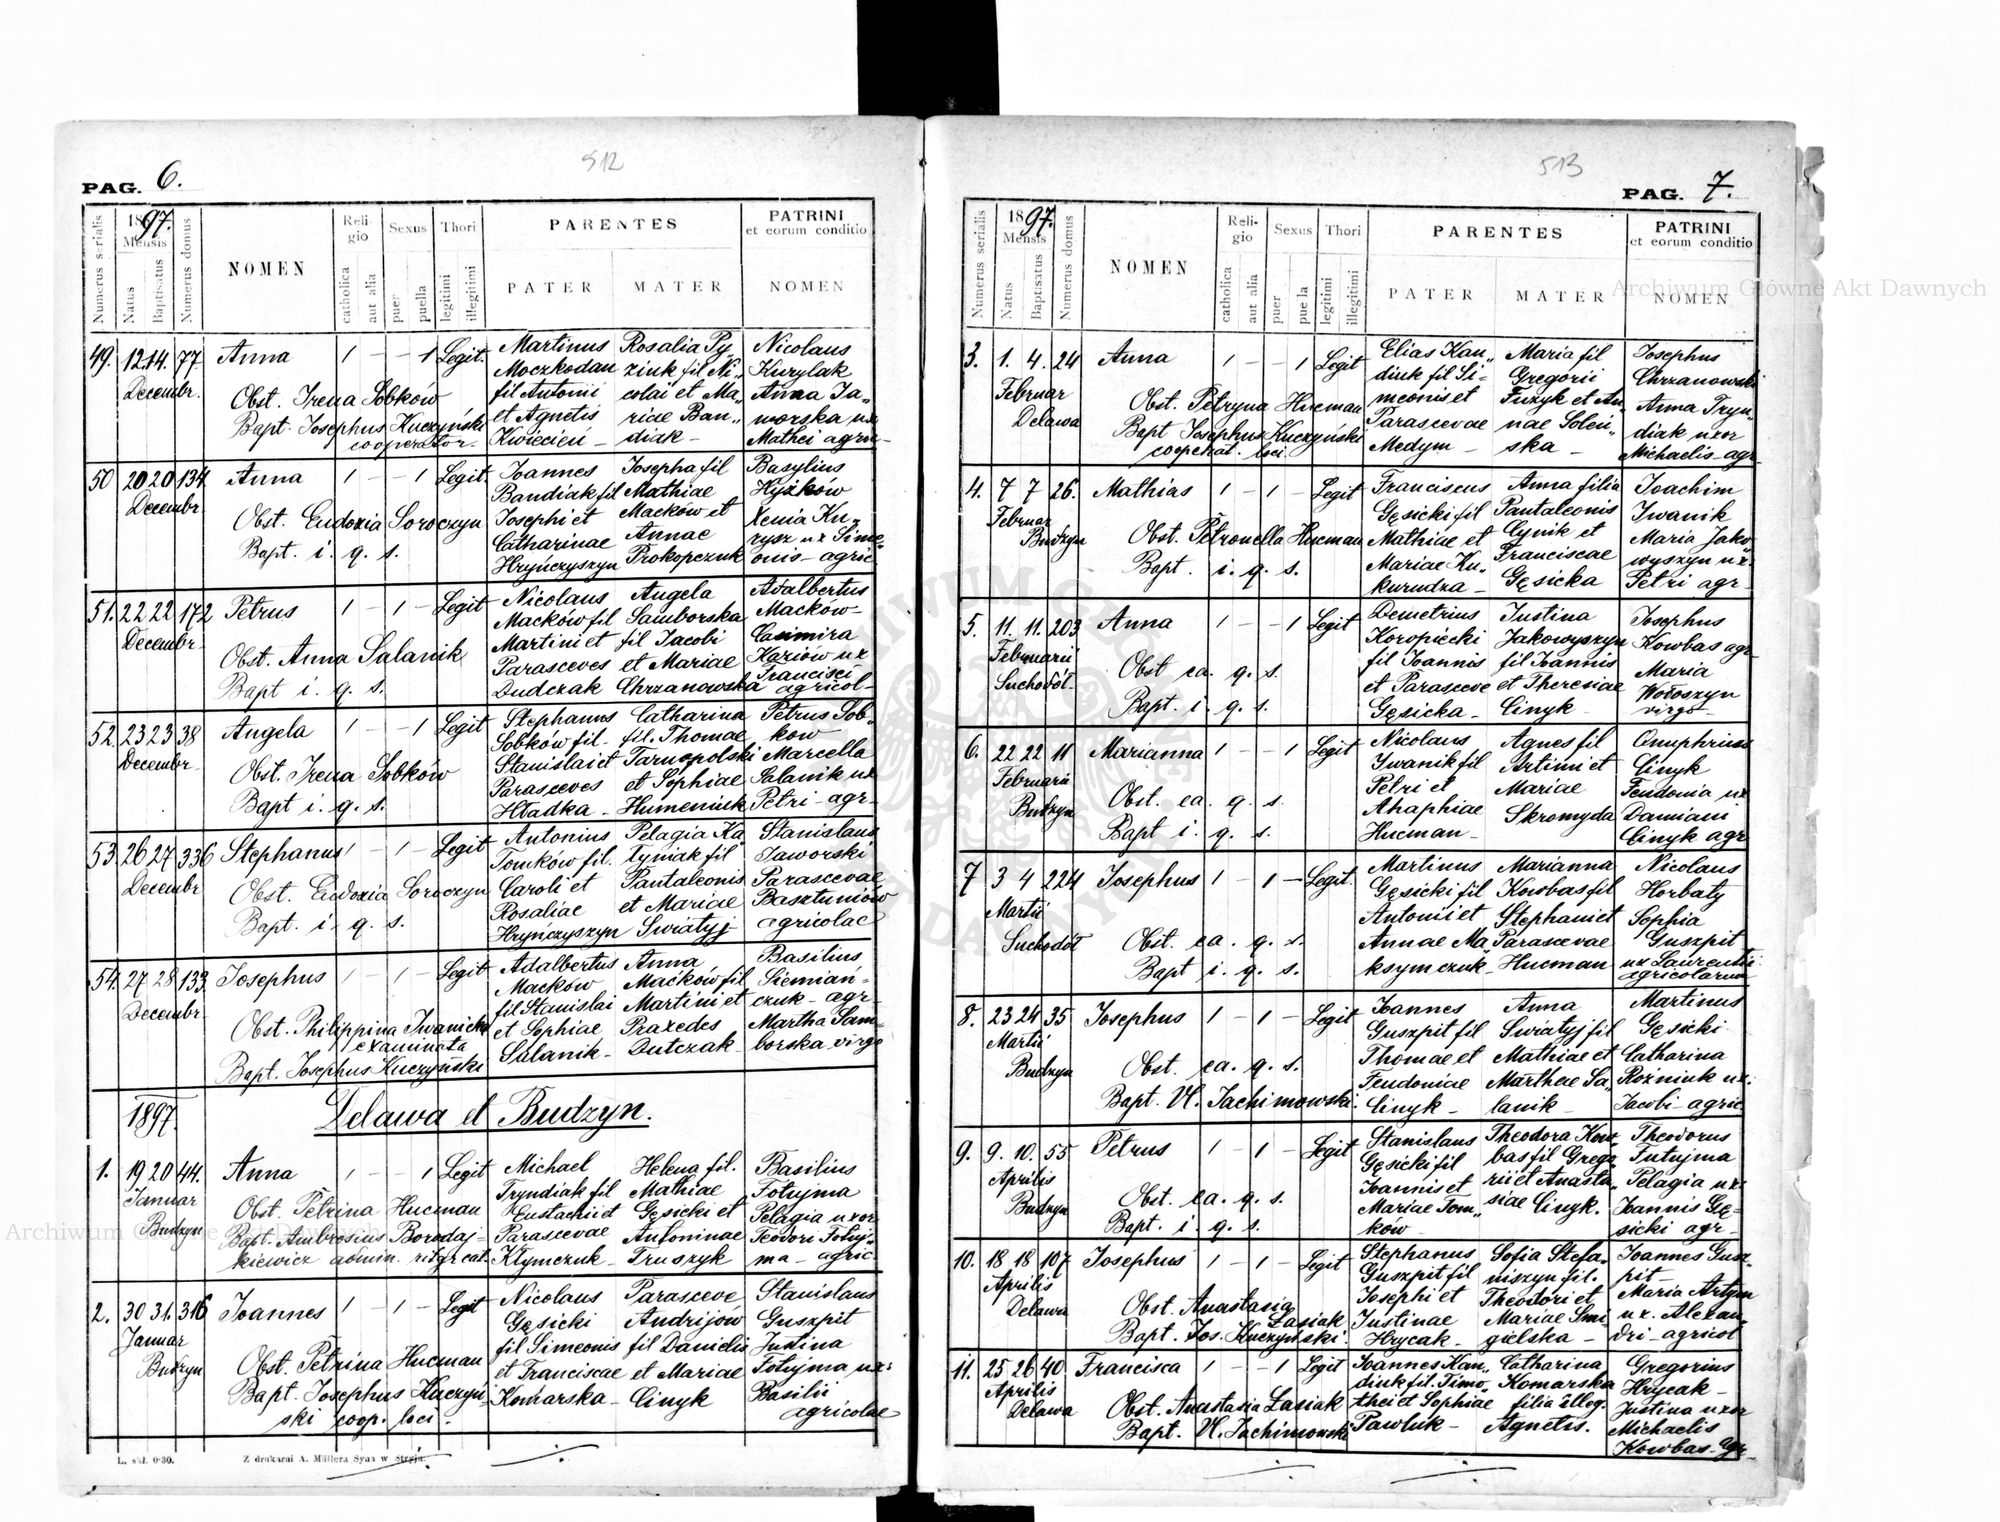 512
PAG. 6.
Numerus serialis
1897.
Mensis
Natus
Baptisatus
Numerus domus
NOMEN
Religio
catholica
aut alia
Sexus
puer
puella
Thori
legitimi
illegitimi
PARENTES
PATER MATER
PATRINI
et eorum conditio
NOMEN
49. 12 14 77 Anna 1 – – 1 Legit. Martinus Rosalia Py„ Nicolaus
Moczkodan ziuk fil Ni„ Kurylak
Decembr. Obst. Irena Sobków fil Antonii colai et Ma„ Anna Ja„
Bapt. Josephus Kuczyński et Agnetis riae Ban„ worska ux
cooperator Kwiecień – diak – Mathei agric–
50 20 20 134 Anna 1 – – 1 Legit. Joannes Josepha fil Basylius
Decembr Bandiak fil Mathiae Hyżków
Obst. Eudoxia Soroczyn Josephi et Macków et Xenia Ku„
Bapt. i. q. s. Catharinae Annae rysz ux Sime„
Hryńczyszyn Prokopczuk onis – agric
51. 22 22 172 Petrus 1 – 1 – Legit Nicolaus Angela Adalbertus
Decembr Macków fil Samborska Macków–
Obst. Anna Salanik Martini et fil Jacobi Casimira
Parasceves et Mariae Kaziów ux
Bapt i. q. s. Dudczak Chrzanowska Francisci
agricol–
52. 23 23 38 Angela 1 – – 1 Legit Stephanus Catharina Petrus Sob„
Decembr Sobków fil. fil. Thomae kow
Obst. Irena Sobków Stanislai et Tarnopolski Marcella
Bapt i. q. s. Parasceves et Sophiae Salanik ux
Hładka – Humeniuk Petri – agr–
53. 26 27 336 Stephanus 1 – 1 – Legit Antonius Pelagia Ka Stanislaus
Decembr Tomków fil. tyniak fil Jaworski
Obst. Eudoxia Soroczyn Caroli et Pantaleonis Parascevae
Bapt. i. q. s. Rosaliae et Mariae Basztuniów
Hryńczyszyn Swiatyj– agricolae
54. 27 28 133 Josephus 1 – 1 – Legit Adalbertus Anna Basilius
Decembr Macków Maćków fil Siemiań–
Obst. Philippina Iwanicka fil Stanislai Martini et czuk – agr–
examinata et Sophiae Praxedes Martha Sam–
Bapt. Josephus Kuczyński Salanik – Dutczak – borska virgo
1897. Delawa et Budzyn.
1. 19 20 44. Anna 1 – – 1 Legit Michael Helena fil. Basilius
Januar Tryndiak fil Mathiae Fotujma
Budzyn Obst. Petrina Hucman Eustachii et Gęsicki et Pelagia uxor
Bapt. Ambrosius Borodaj– Parascevae Antoninae Teodori Fotuj–
kiewicz admin. rit gr cat. Klymczuk – Truszyk ma – agric
2. 30 31 316 Joannes 1 – 1 – Legit Nicolaus Parasceve Stanislaus
Januar Gęsicki Andrijów Guszpit
Budzyn fil Simeonis fil Danielis Justina
Obst. Petrina Hucman et Franciscae et Mariae Fotujma ux:
Bapt. Josephus Kuczyń– Komarska – Cinyk Basilii
ski coop. loci– agricolae
L. skł. 0·30. Z drukarni A. Müllera Syna w Stryju.
513
PAG. 7.
Numerus serialis
1897.
Mensis
Natus
Baptisatus
Numerus domus
NOMEN
Religio
catholica
aut alia
Sexus
puer
puella
Thori
legitimi
illegitimi
PARENTES
PATER MATER
PATRINI
et eorum conditio
NOMEN
3. 1. 4. 24 Anna 1 – – 1 Legit Elias Kan„ Maria fil Josephus
Februar diuk fil Si– Gregorii Chrzanowski
Delawa Obst. Petryna Hucman meonis et Fuzyk et An„ Anna Tryn„
Bapt Josephus Kuczyński Parascevae nae Soleń„ diak uxor
cooperat. loci Medym – ska – Michaelis agr–
4. 7 7 26. Mathias 1 – 1 – Legit Franciscus Anna filia Joachim
Februar Gęsicki fil Pantaleonis Iwanik
Budzyn Obst. Petronella Hucman Mathiae et Cynik et Maria Jako„
Bapt. i. q. s. Mariae Ku„ Franciscae wyszyn ux
kurudza – Gęsicka – Petri agr–
5. 11. 11. 203 Anna 1 – – 1 Legit Demetrius Justina Josephus
Februarii Koropiecki Jakowyszyn Kowbas agr–
Suchodół– Obst ea. q. s. fil Joannis fil Joannis Maria
Bapt. i. q. s. et Parasceve et Theresiae Wołoszyn
Gęsicka – Cinyk – virgo–
6. 22 22 11 Marianna 1 – – 1 Legit Nicolaus Agnes fil Onuphrius
Februarii Iwanik fil Artimi et Cinyk
Budzyn Obst. ea. q. s. Petri et Mariae Feudonia ux
Bapt i. q. s. Ahaphiae Skromyda Damiani
Hucman– Cinyk agr
7 3 4 224 Josephus 1 – 1 – Legit. Martinus Marianna Nicolaus
Martii Gęsicki fil Kowbas fil Horbaty
Suchodół Obst. ea. q. s. Antonii et Stephani et Sophia
Bapt i. q. s. Annae Ma„ Parascevae Guszpit
ksymczuk– Hucman ux Laurentii
agricolarum
8. 23 24 35 Josephus 1 – 1 – Legit Joannes Anna Martinus
Martii Guszpit fil Swiatyj fil Gęsicki
Budzyn Obst. ea. q. s. Thomae et Mathiae et Catharina
Feudoniae Marthae Sa„ Rożniuk ux.
Bapt. Vl. Jachimowski. Cinyk – lanik – Jacobi – agric
9. 9. 10. 55 Petrus 1 – 1 – Legit Stanislaus Theodora Kow„ Theodorus
Aprilis Gęsicki fil bas fil Grego„ Futujma
Budzyn Obst. ea. q. s. Joannis et rii et Anasta„ Pelagia ux.
Bapt. i. q. s. Mariae Tom„ siae Cinyk. Joannis Gę–
ków – sicki agr–
10. 18 18 107 Josephus 1 – 1 – Legit Stephanus Sofia Stefa„ Joannes Gusz„
Aprilis Guszpit fil niszyn fil. pit–
Delawa Obst. Anastasia Josephi et Theodori et Maria Artym
Łasiak Justinae Mariae Smi ux. Alexan„
Bapt. Jos. Kuczyński. Hrycak– gielska – dri – agricol
11. 25 26 40 Francisca 1 – – 1 Legit Joannes Kan„ Catharina Gregorius
Aprilis diuk fil. Timo„ Komarska Hrycak–
Delawa Obst. Anastasia Łasiak thei et Sophiae filia illeg. Justina uxor
Bapt. Vl. Jachimowski Pawluk – Agnetis. Michaelis
Kowbas. agr–
Archiwum Główne Akt Dawnych
Archiwum Główne Akt Dawnych
ARCHIWUM GŁÓWNE AKT DAWNYCH